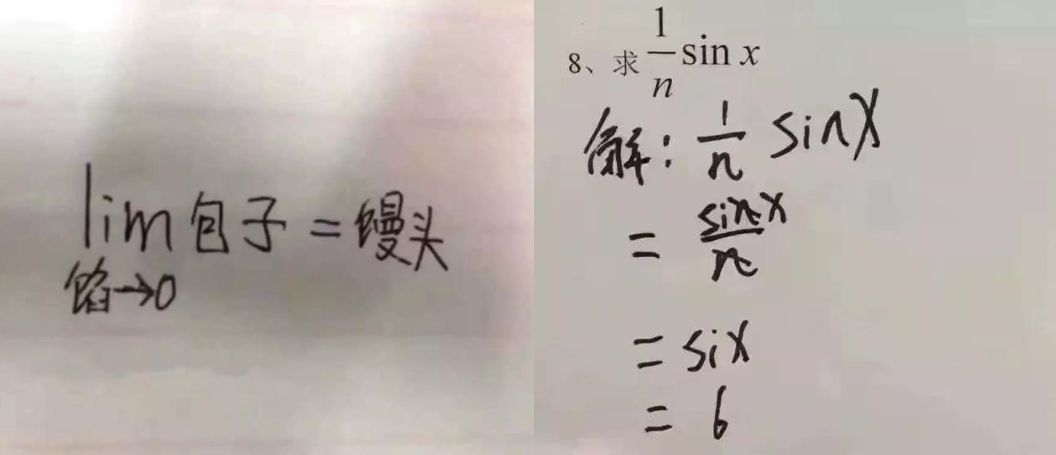 lim 包子 = 馒头
馅→0
8、求 1/n sin x
解: 1/n sin x
= sinx/n
= six
= 6